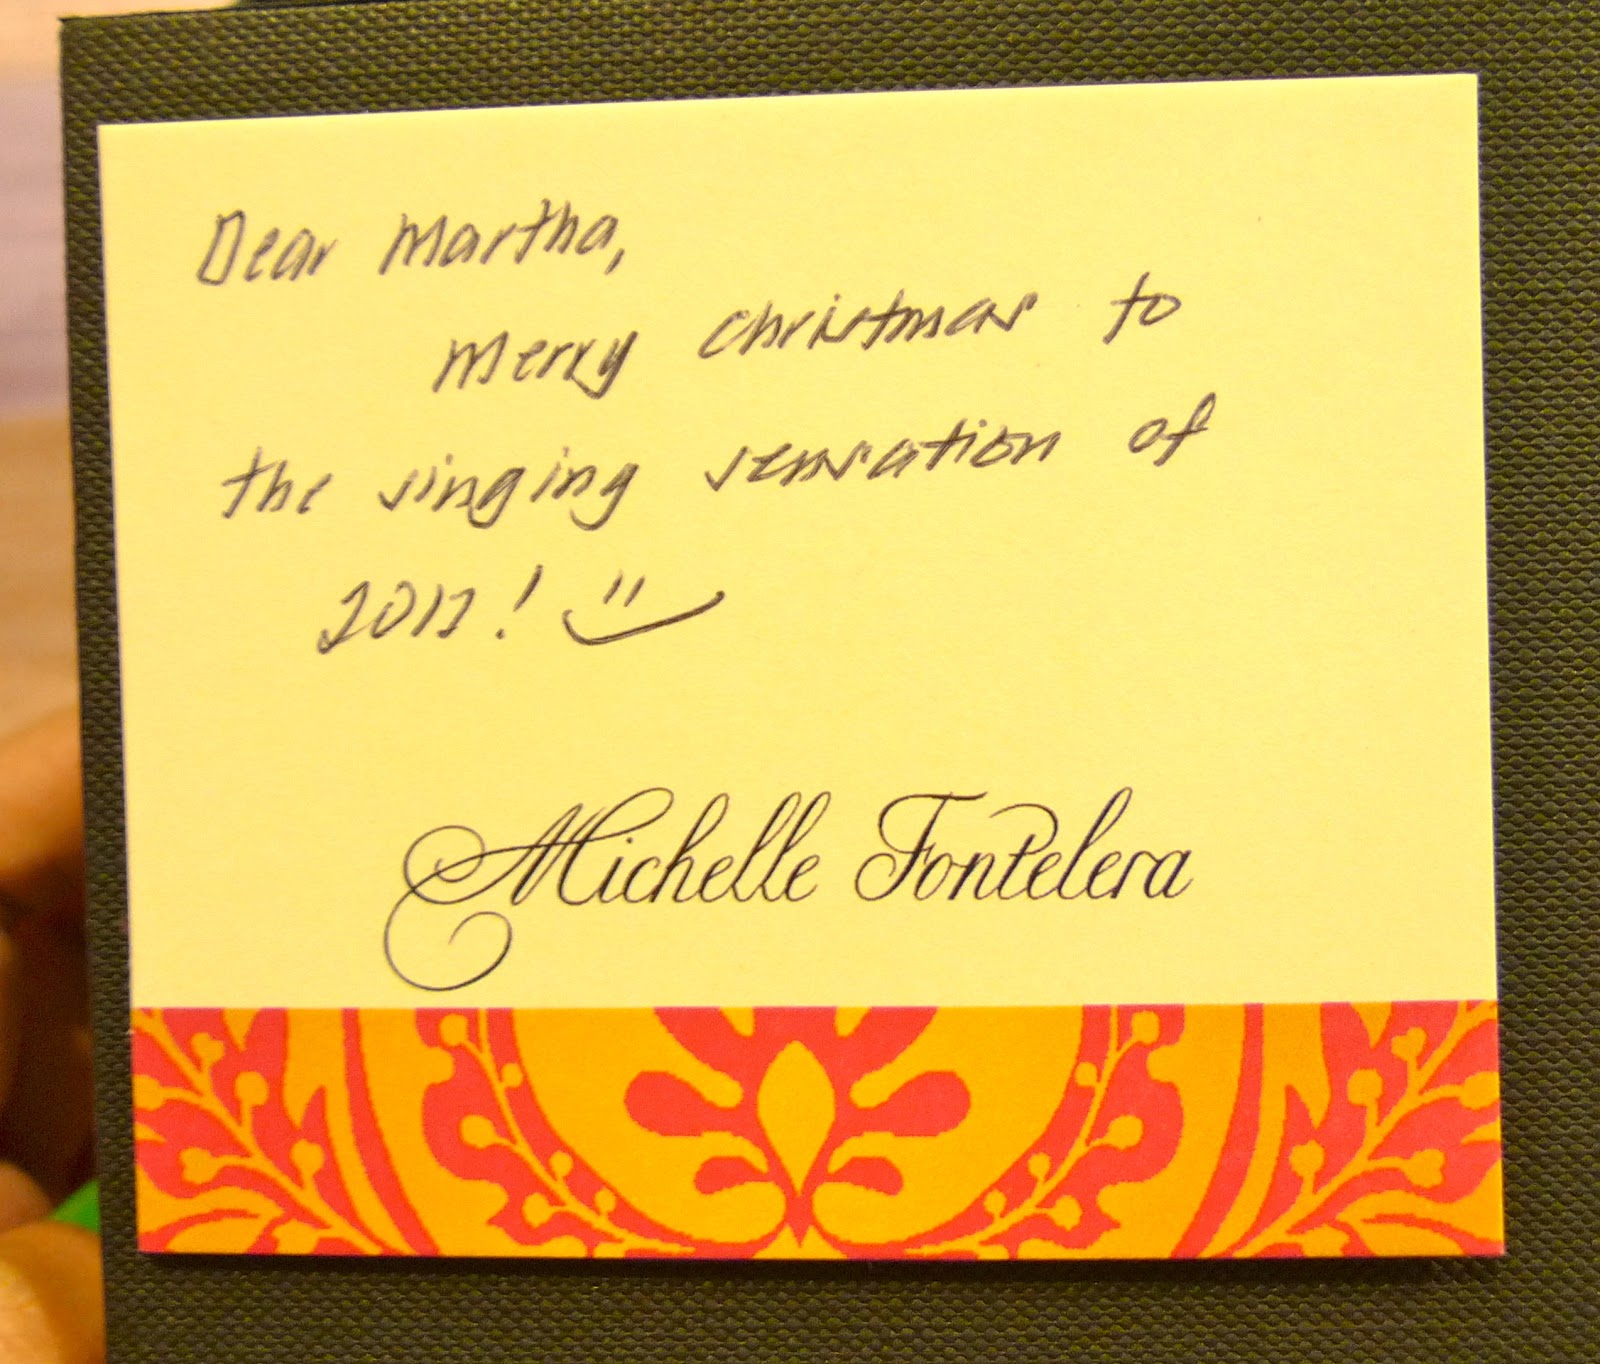 Dear Martha,
Merry Christmas to
the singing sensation of
2012! :)
Michelle Fontelera